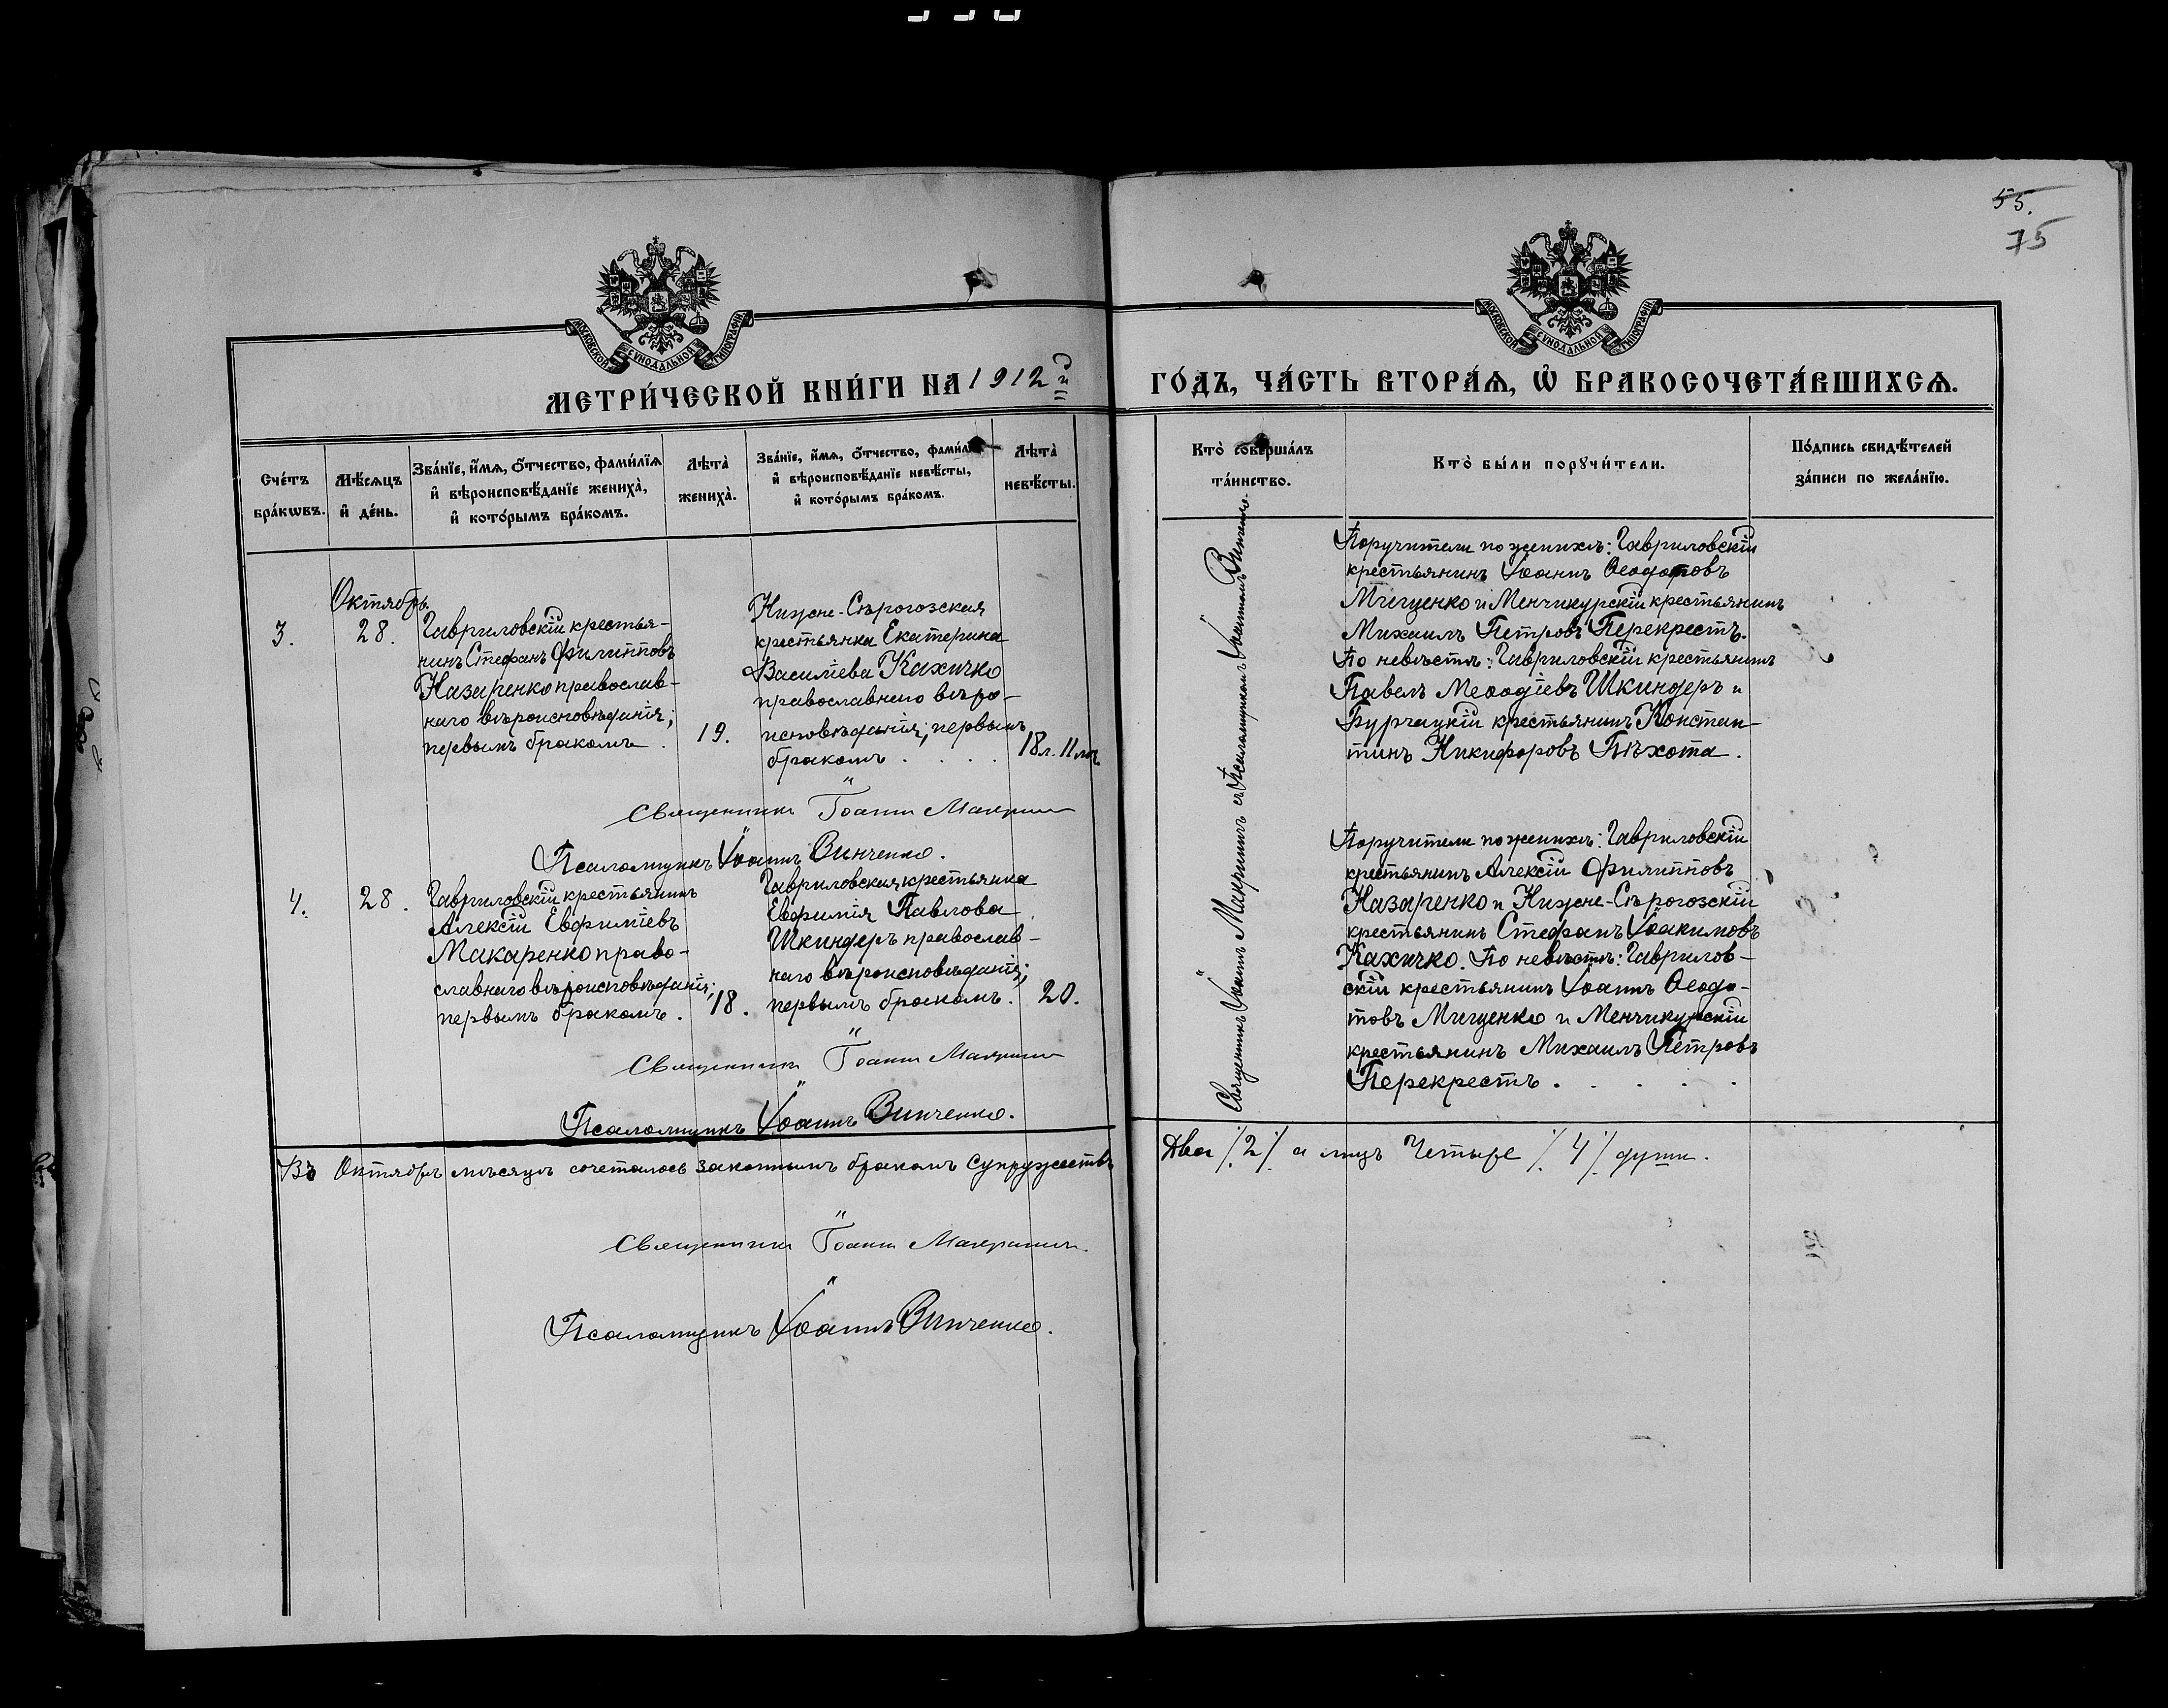 55.
75
МОСКОВСКОЙ СѴНОДАЛЬНОЙ ТИПОГРАФІИ
МОСКОВСКОЙ СѴНОДАЛЬНОЙ ТИПОГРАФІИ
МЕТРИ́ЧЕСКОЙ КНИ́ГИ НА 1912ый ГО́ДЪ, ЧА́СТЬ ВТОРА́Я, Ѡ БРАКОСОЧЕТА́ВШИХСЯ.
Сче́тъ бра́кѡвъ.
Мѣ́сяцъ и҆ де́нь.
Зва́нїе, и҆́мя, ѻ҆́тчество, фами́лїя
и҆ вѣроисповѣ́данїе жениха̀,
и҆ кото́рымъ бра́комъ.
Лѣта̀ жениха̀.
Зва́нїе, и҆́мя, ѻ҆́тчество, фами́лїя
и҆ вѣроисповѣ́данїе невѣ́сты,
и҆ кото́рымъ бра́комъ.
Лѣта̀ невѣ́сты.
Кто̀ соверша́лъ
та́инство.
Кто̀ бы́ли порꙋчи́тели.
По́дпись свидѣ́телей
за́писи по жела́нїю.
3.
Октябрь
28.
Гавриловскій крестья-
нинъ Стефанъ Филипповъ
Назаренко православ-
наго вѣроисповѣданія;
первымъ бракомъ.
19.
Нижне-Сѣрогозская
крестьянка Екатерина
Василіева Кахичко
православнаго вѣро-
исповѣданія; первымъ
бракомъ . . . .
18 л. 11 м.
Священникъ Іоаннъ Макринъ съ Псаломщикомъ Іоанномъ Винченко.
Поручители по женихѣ: Гавриловскій
крестьянинъ Іоаннъ Ѳеодотовъ
Мищенко и Менчикурскій крестьянинъ
Михаилъ Петровъ Перекрестъ.
По невѣстѣ: Гавриловскій крестьянинъ
Павелъ Меѳодіевъ Шкиндеръ и
Бурчацкій крестьянинъ Констан-
тинъ Никифоровъ Пѣхота.
Священникъ Іоаннъ Макринъ
Псаломщикъ Іоаннъ Винченко.
4.
28.
Гавриловскій крестьянинъ
Алексій Евфиміевъ
Макаренко право-
славнаго вѣроисповѣданія;
первымъ бракомъ.
18.
Гавриловская крестьянка
Евфимія Павлова
Шкиндеръ православ-
наго вѣроисповѣданія;
первымъ бракомъ.
20.
Поручители по женихѣ: Гавриловскій
крестьянинъ Алексій Филипповъ
Назаренко и Нижне-Сѣрогозскій
крестьянинъ Стефанъ Іоакимовъ
Кахичко. По невѣстѣ: Гаврилов-
скій крестьянинъ Іоаннъ Ѳеодо-
товъ Мищенко и Менчикурскій
крестьянинъ Михаилъ Петровъ
Перекрестъ . . . . .
Священникъ Іоаннъ Макринъ
Псаломщикъ Іоаннъ Винченко.
Въ Октябрѣ мѣсяцѣ сочеталось законнымъ бракомъ супружествъ Два /.2./ а лицъ Четыре /.4./ души.
Священникъ Іоаннъ Макринъ.
Псаломщикъ Іоаннъ Винченко.